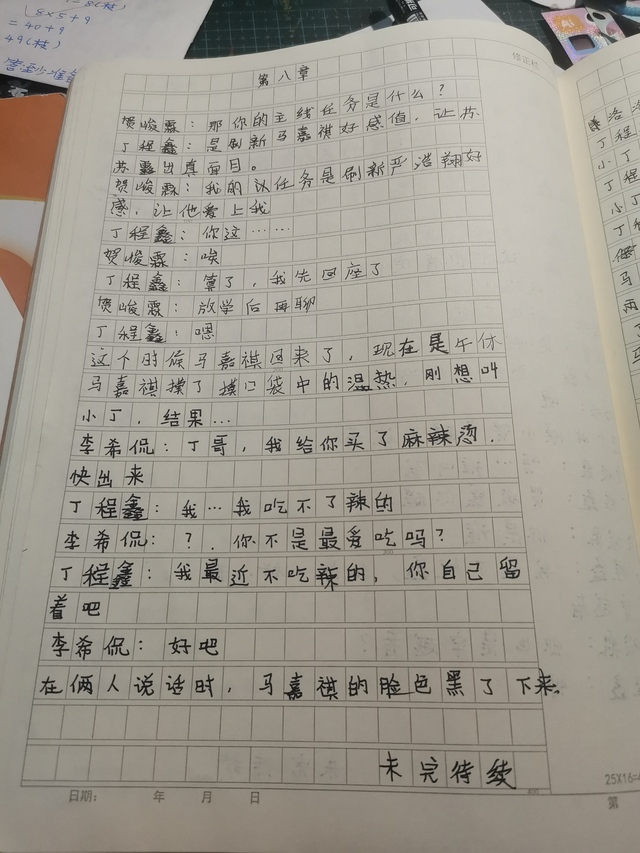 8×5+9
=40+9
49(枝)
修正栏
第八章
贺峻霖：那你的主线任务是什么？
丁程鑫：是刷新马嘉祺好感值，让苏
苏露出真面目。
贺峻霖：我的认任务是刷新严浩翔好
感，让他爱上我
丁程鑫：你这……
贺峻霖：唉
丁程鑫：算了，我先回座了
贺峻霖：放学后再聊
丁程鑫：嗯
这个时候马嘉祺回来了，现在是午休
马嘉祺摸了摸口袋中的温热，刚想叫
小丁，结果…
李希侃：丁哥，我给你买了麻辣烫，
快出来
丁程鑫：我…我吃不了辣的
李希侃：？，你不是最爱吃吗？
丁程鑫：我最近不吃辣的，你自己留
着吧
李希侃：好吧
在俩人说话时，马嘉祺的脸色黑了下来。
未完待续
日期： 年 月 日
25X16=4
第